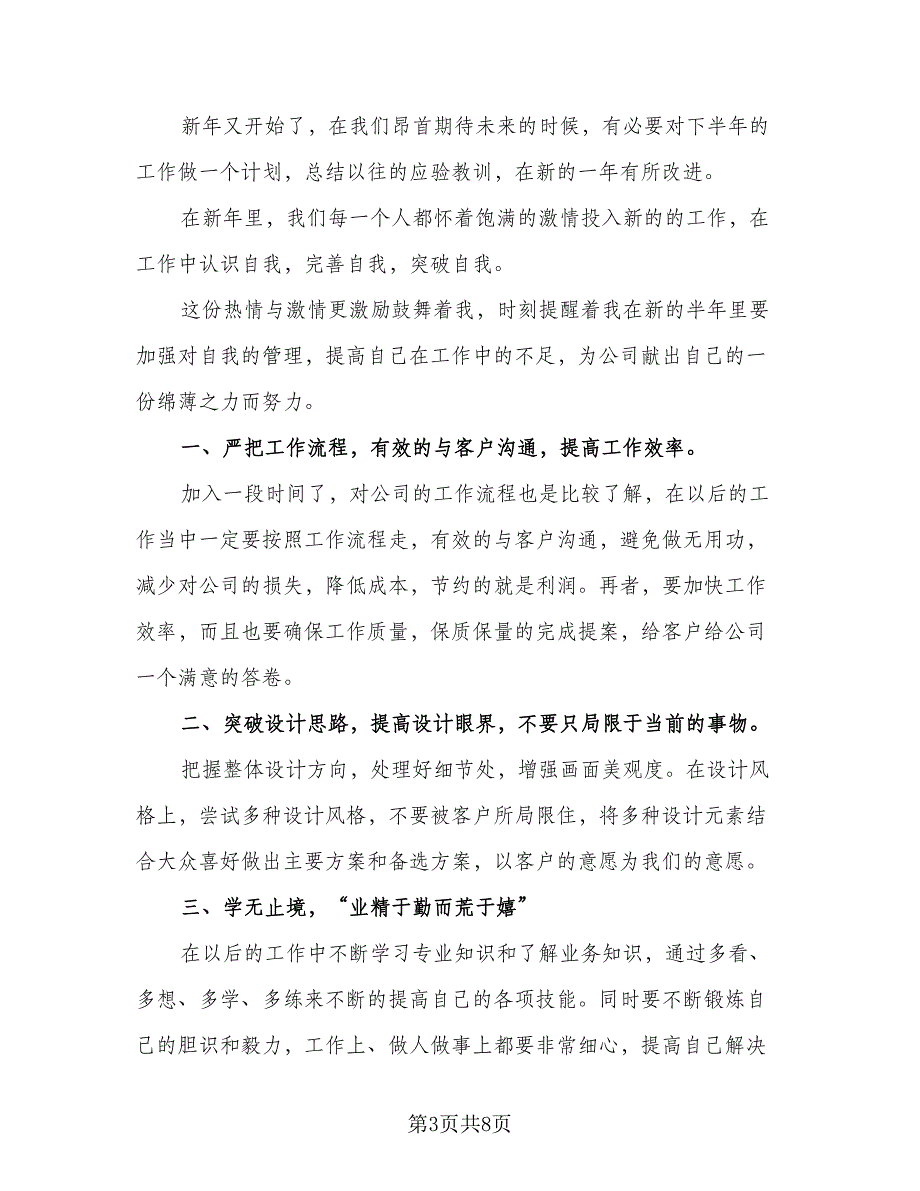 新年又开始了，在我们昂首期待未来的时候，有必要对下半年的
工作做一个计划，总结以往的应验教训，在新的一年有所改进。
在新年里，我们每一个人都怀着饱满的激情投入新的的工作，在
工作中认识自我，完善自我，突破自我。
这份热情与激情更激励鼓舞着我，时刻提醒着我在新的半年里要
加强对自我的管理，提高自己在工作中的不足，为公司献出自己的一
份绵薄之力而努力。
一、严把工作流程，有效的与客户沟通，提高工作效率。
加入一段时间了，对公司的工作流程也是比较了解，在以后的工
作当中一定要按照工作流程走，有效的与客户沟通，避免做无用功，
减少对公司的损失，降低成本，节约的就是利润。再者，要加快工作
效率，而且也要确保工作质量，保质保量的完成提案，给客户给公司
一个满意的答卷。
二、突破设计思路，提高设计眼界，不要只局限于当前的事物。
把握整体设计方向，处理好细节处，增强画面美观度。在设计风
格上，尝试多种设计风格，不要被客户所局限住，将多种设计元素结
合大众喜好做出主要方案和备选方案，以客户的意愿为我们的意愿。
三、学无止境，“业精于勤而荒于嬉”
在以后的工作中不断学习专业知识和了解业务知识，通过多看、
多想、多学、多练来不断的提高自己的各项技能。同时要不断锻炼自
己的胆识和毅力，工作上、做人做事上都要非常细心，提高自己解决
第3页共8页